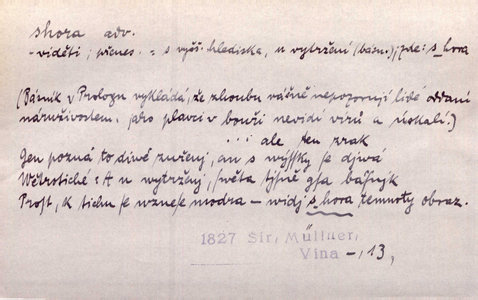 shora adv.
- viděti; přenes. = s vyšš. hlediska, u vytržení (básn.); zde: s_hora
(Básník v Prologu vykládá, že zhoubu vášně nepozorují lidé oddaní
náruživostem, jako plavci v bouři nevidí vírů a úskalí.)
... ale ten zrak
Gen pozná to diwé zuřenj, an s weyssky se djwá
Wětrotiché: A u wytrženj, swěta tjsně gsa básnjk
Prost, k tichu se wznese modra – widj s_hora temnoty obraz.
1827 Šír, Müllner,
Vina -, 13,